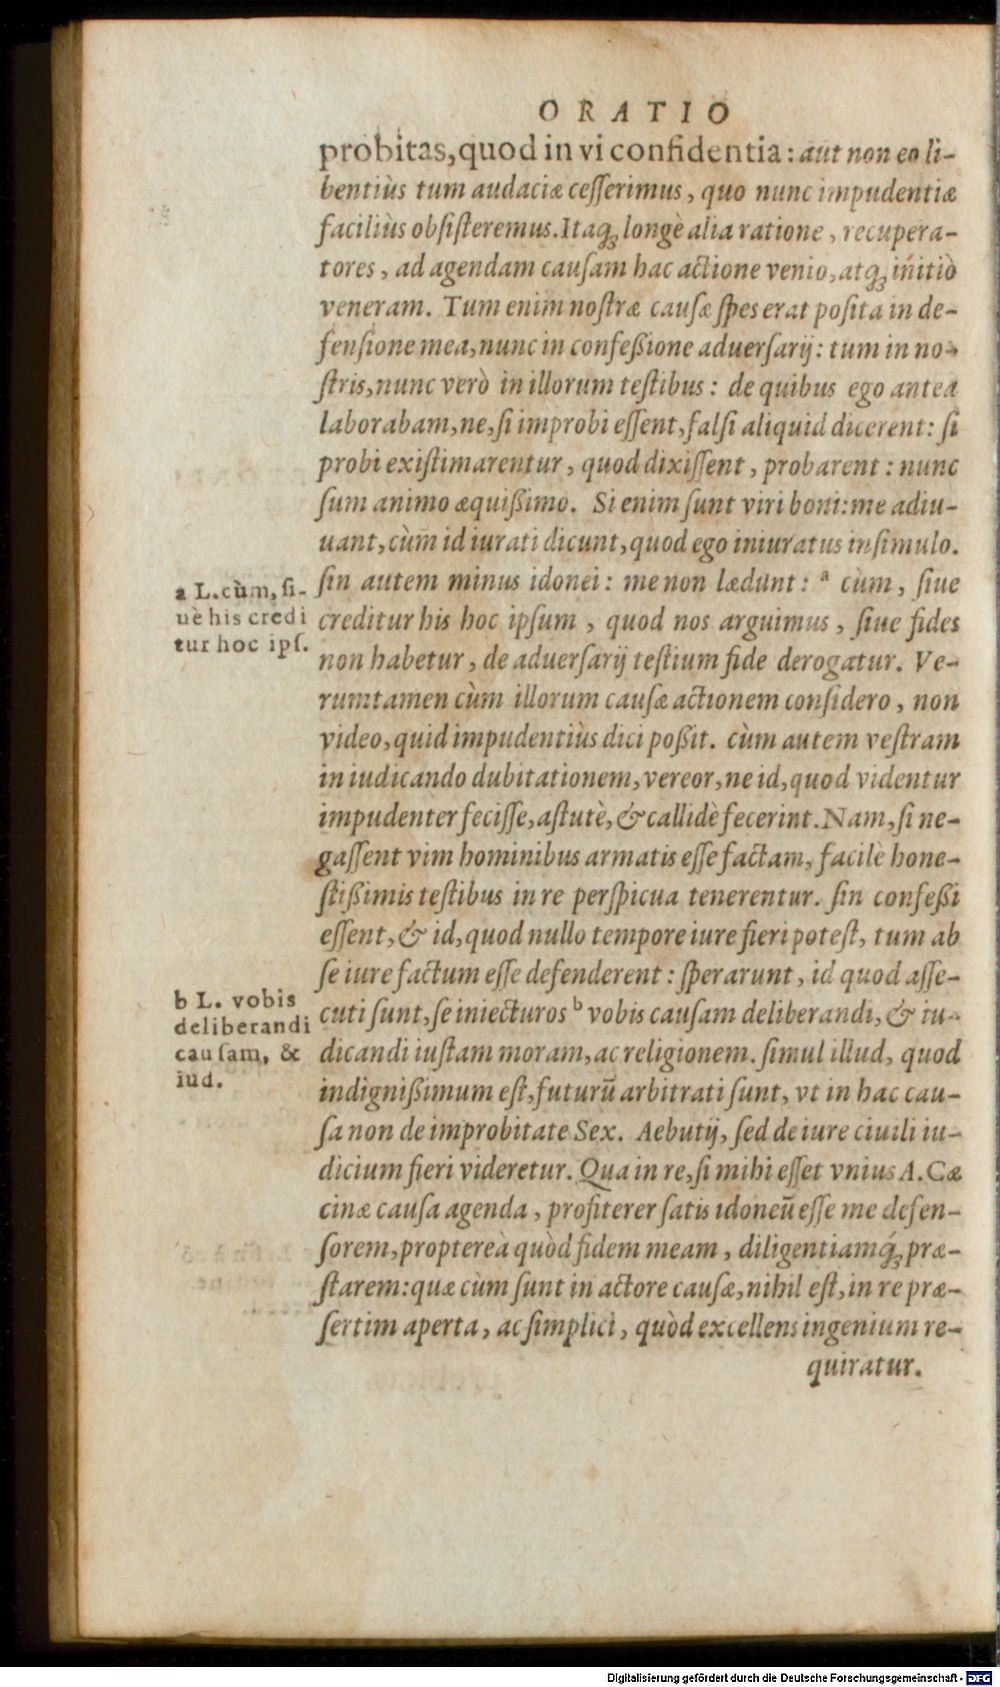 ORATIO
probitas, quod in vi confidentia: aut non eo li-
bentiùs tum audaciæ cesserimus, quo nunc impudentiæ
faciliùs obsisteremus. Itaq; longè alia ratione, recupera-
tores, ad agendam causam hac actione venio, atq; initiò
veneram. Tum enim nostræ causæ spes erat posita in de-
fensione mea, nunc in confeßione aduersarij: tum in no-
stris, nunc verò in illorum testibus: de quibus ego antea
laborabam, ne, si improbi essent, falsi aliquid dicerent: si
probi existimarentur, quod dixissent, probarent: nunc
sum animo æquißimo. Si enim sunt viri boni: me adiu-
uant, cùm id iurati dicunt, quod ego iniuratus insimulo.
a L. cùm, si-
uè his credi
tur hoc ips.
sin autem minus idonei: me non lædunt: a cùm, siue
creditur his hoc ipsum, quod nos arguimus, siue fides
non habetur, de aduersarij testium fide derogatur. Ve-
rumtamen cùm illorum causæ actionem considero, non
video, quid impudentiùs dici poßit. cùm autem vestram
in iudicando dubitationem, vereor, ne id, quod videntur
impudenter fecisse, astutè, & callidè fecerint. Nam, si ne-
gassent vim hominibus armatis esse factam, facilè hone-
stißimis testibus in re perspicua tenerentur. sin confeßi
essent, & id, quod nullo tempore iure fieri potest, tum ab
se iure factum esse defenderent: sperarunt, id quod asse-
b L. vobis
deliberandi
causam, &
iud.
cuti sunt, se iniecturos b vobis causam deliberandi, & iu-
dicandi iustam moram, ac religionem. simul illud, quod
indignißimum est, futurū arbitrati sunt, vt in hac cau-
sa non de improbitate Sex. Aebutij, sed de iure ciuili iu-
dicium fieri videretur. Qua in re, si mihi esset vnius A. Cæ
cinæ causa agenda, profiterer satis idoneū esse me defen-
sorem, proptereà quòd fidem meam, diligentiamq́; præ-
starem: quæ cùm sunt in actore causæ, nihil est, in re præ-
sertim aperta, ac simplici, quòd excellens ingenium re-
quiratur.
Digitalisierung gefördert durch die Deutsche Forschungsgemeinschaft - DFG